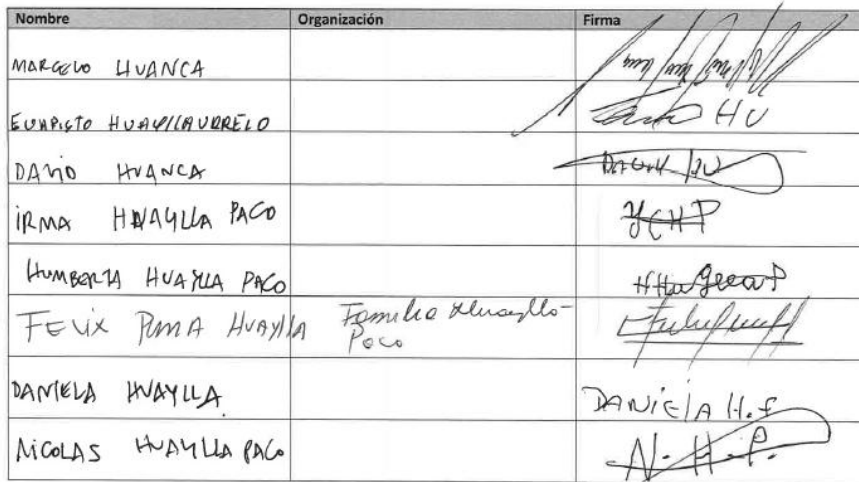 Nombre Organización Firma
MARCELO HUANCA
EVARISTO HUAYLLA URRELO HU
DAVID HUANCA
IRMA HUAYLLA PACO YCHP
HUMBERTA HUAYLLA PACO
FELIX PUMA HUAYLLA Familia Huaylla-
Paco
DANIELA HUAYLLA DANIELA H.F
NICOLAS HUAYLLA PACO N.H.P.